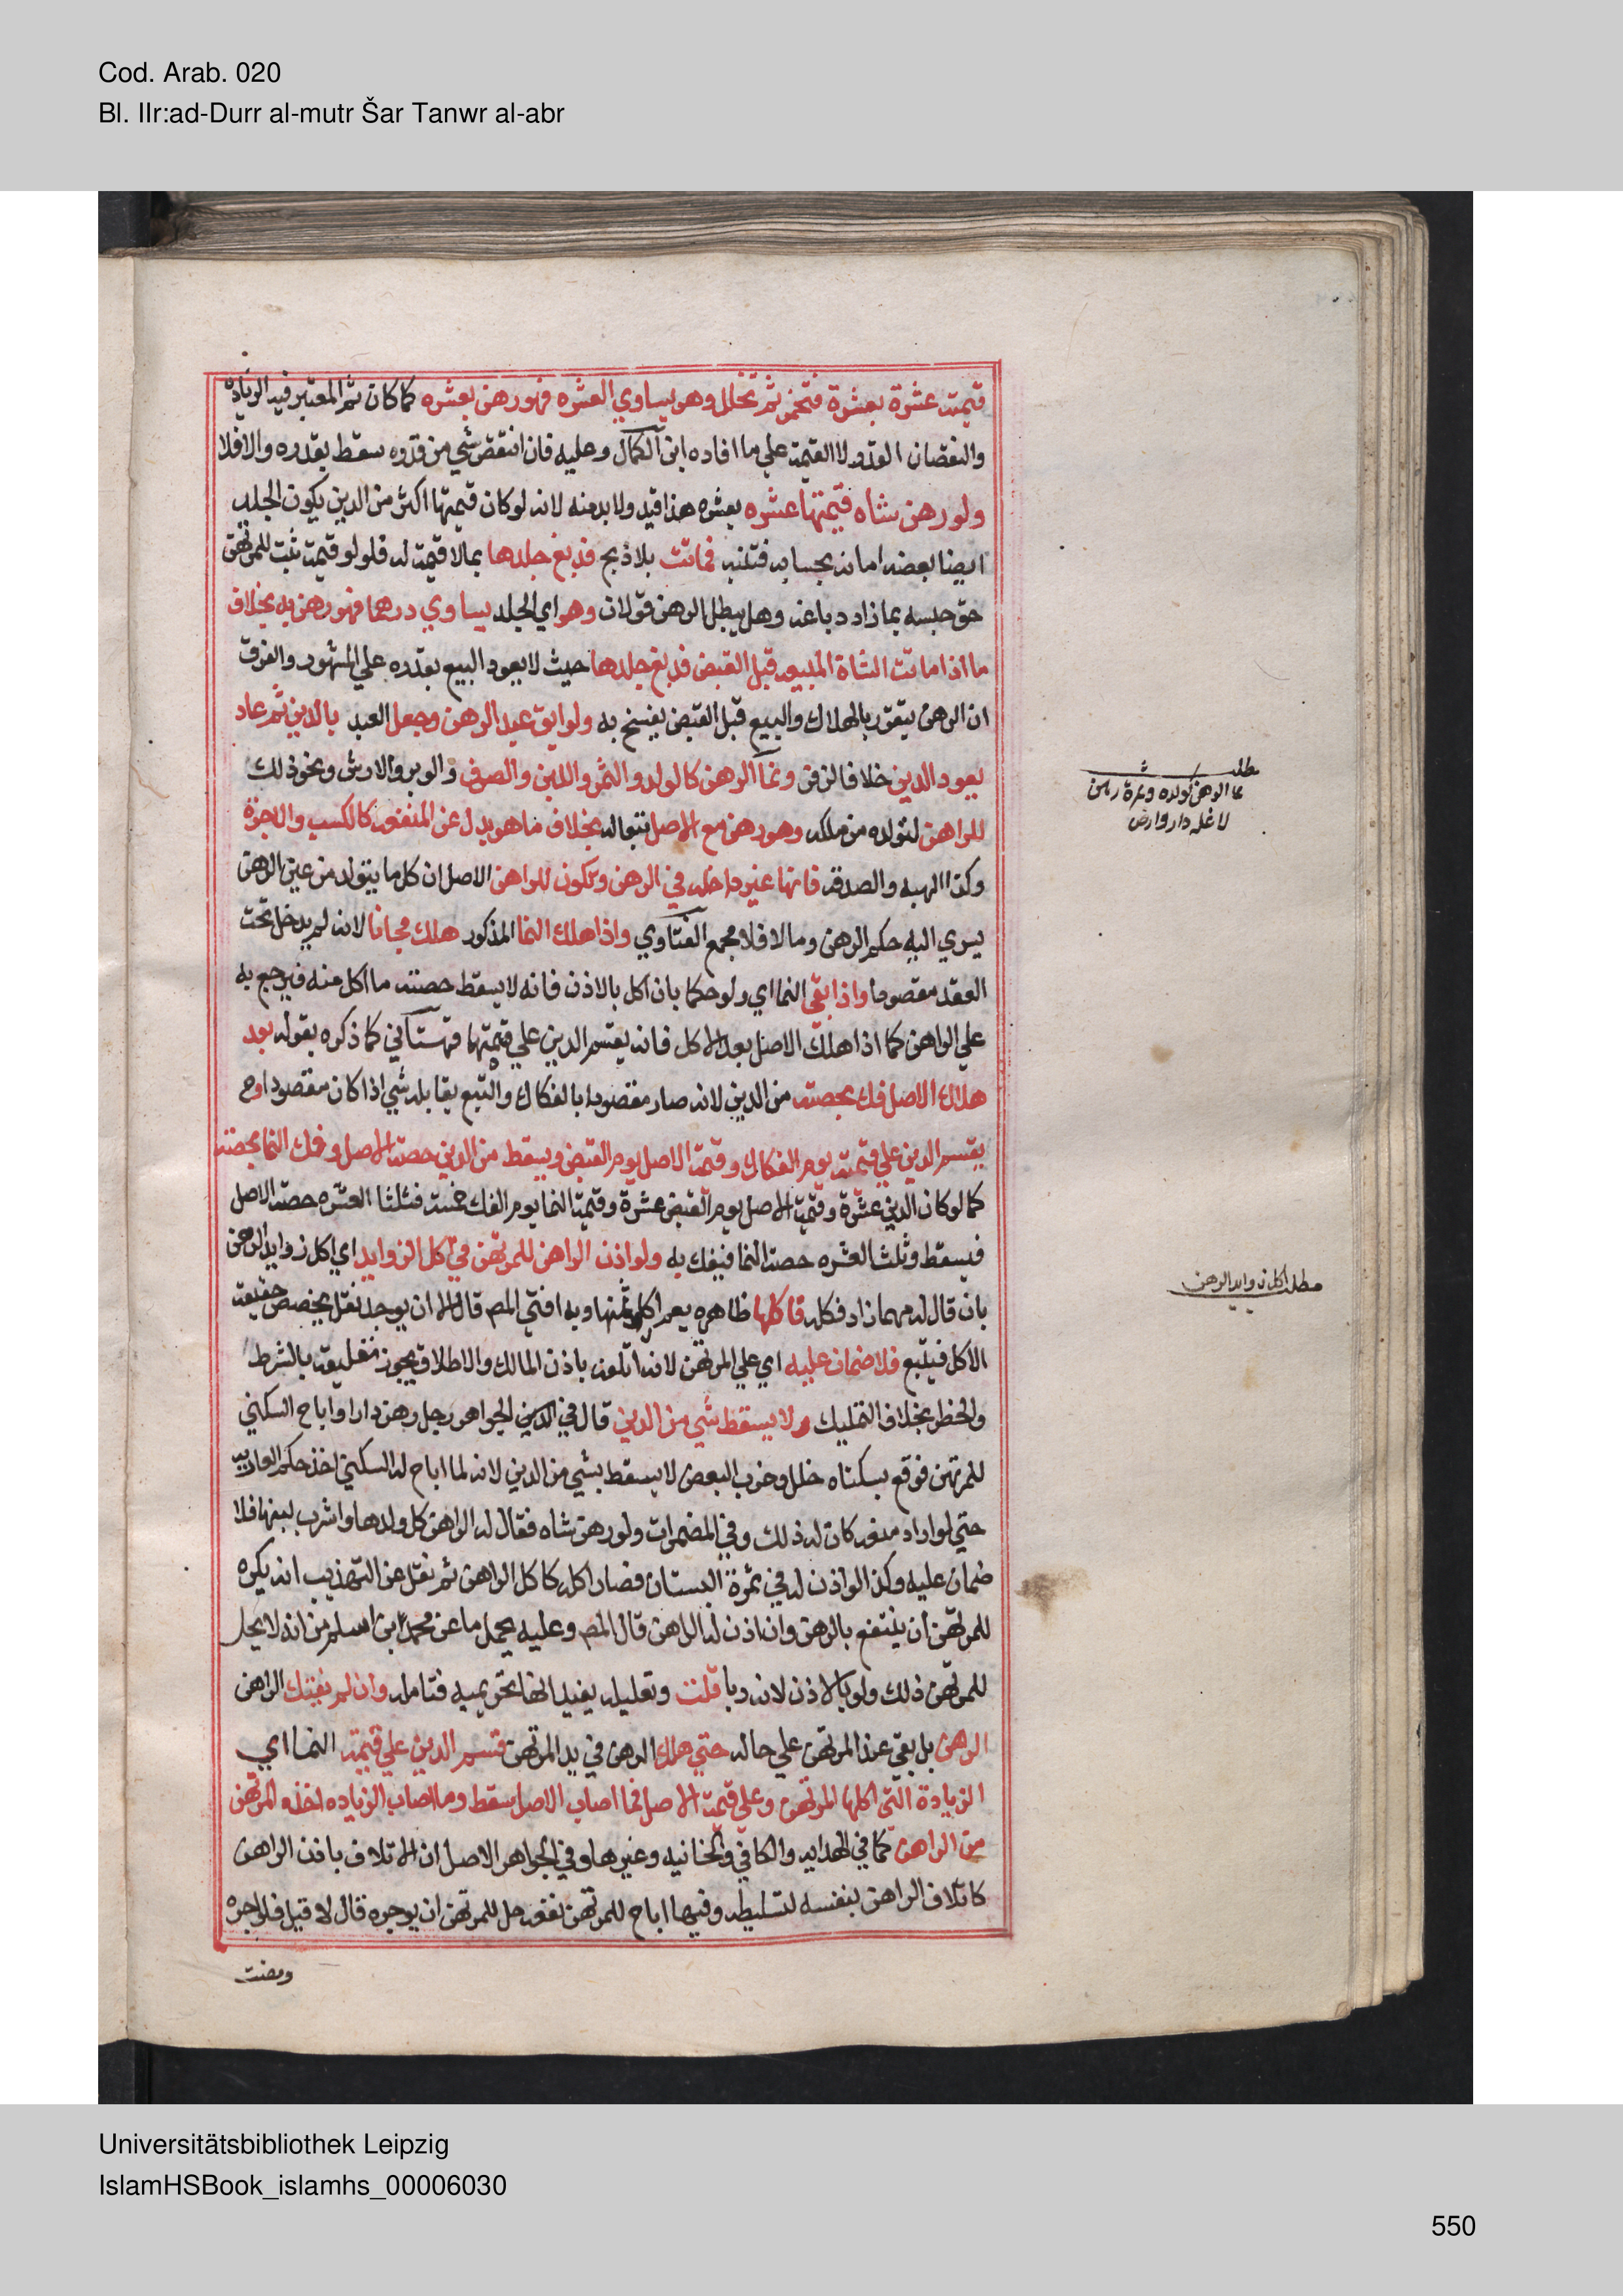 Cod. Arab. 020
Bl. IIr:ad-Durr al-mutr Šar Tanwr al-abr
قيمته عشرة بعشرة فتخمر ثم تخلل وهو يساوي العشره فهو رهن بعشره كما كان ثم المعتبر فيه الزياده
والنقصان القدر لا القيمة علي ما افاده ابن الكمال وعليه فان انتقص شي من قدره سقط بقدره والا فلا
ولو رهن شاه قيمتها عشره بعشره هذا قيد ولا بد منه لانه لو كان قيمتها اكثر من الدين يكون الجلد
ايضا بعضه امانه بحسابه فتنبه فماتت بلا ذبح فدبغ جلدها بما لا قيمة له فلو له قيمة ثبت للمرتهن
حق حبسه بما زاد دباغه وهل يبطل الرهن قولان وهو اي الجلد يساوي درهما فهو رهن به بخلاف
ما اذا ماتت الشاة المبيعه قبل القبض فدبغ جلدها حيث لا يعود البيع بقدره علي المشهور والفرق
ان الرهن يتقرر بالهلاك والبيع قبل القبض يفسخ به ولو ابق عبد الرهن وجعل العبد بالدين ثم عاد
يعود الدين خلافا لزفر ونما الرهن كالولد والثمر واللبن والصوف والوبر والارش ونحو ذلك
للراهن لتولده من ملكه وهو رهن مع الاصل تبعا له بخلاف ما هو بدل عن المنفعه كالكسب والاجرة
وكذا الهبه والصدقه فانها غير داخله في الرهن وتكون للراهن الاصل ان كل ما يتولد من عين الرهن
يسري اليه حكم الرهن وما لا فلا مجمع الفتاوي واذا هلك النما المذكور هلك مجانا لانه لم يدخل تحت
العقد مقصودا واذا بقي النما اي ولو حكما بان اكل بالاذن فانه لا يسقط حصته ما اكل منه فيرجع به
علي الراهن كما اذا هلك الاصل بعد الاكل فانه يقسم الدين علي قيمتهما قهستاني كما ذكره بقوله بعد
هلاك الاصل فك بحصته من الدين لانه صار مقصودا بالفكاك والتبع يقابله شي اذا كان مقصودا وح
يقسم الدين علي قيمته يوم الفكاك وقيمة الاصل يوم القبض ويسقط من الدين حصة الاصل وفك النما بحصته
كما لو كان الدين عشرة وقيمة الاصل يوم القبض عشرة وقيمة النما يوم الفك خمسة فثلثا العشره حصة الاصل
فيسقط وثلث العشره حصة النما فيفك به ولو اذن الراهن للمرتهن في اكل الزوايد اي اكل زوايد الرهن
بان قال له مهما زاد فكله فاكلها ظاهره يعم اكل ثمنها وبه افتي المص قال الا ان يوجد نقل بخصيص حقيقة
الاكل فيتبع فلا ضمان عليه اي علي المرتهن لانه اتلفه باذن المالك والاطلاق يجوز تعليقه بالشرط
والخطر بخلاف التمليك ولا يسقط شي من الدين قال في الدين الجواهر رجل رهن دارا واباح السكني
للمرتهن فوقع بسكناه خلل وخرب البعض لا يسقط بشي من الدين لانه لما اباح له السكني اخذ حكم العاريه
حتي لو اراد منعه كان له ذلك وفي المضمرات ولو رهن شاه فقال له الراهن كل ولدها واشرب لبنها فلا
ضمان عليه وكذا لو اذن له في ثمرة البستان فصار اكله كاكل الراهن ثم نقل عن التهذيب انه يكره
للمرتهن ان ينتفع بالرهن وان اذن له الراهن قال المص وعليه يحمل ما عن محمد ابن اسلم من انه لا يحل
للمرتهن ذلك ولو بالاذن لانه ربا قلت وتعليله يفيد انها تحريميه فتامله وان لم يفتك الراهن
الرهن بل بقي عند المرتهن علي حاله حتي هلك الرهن في يد المرتهن قسم الدين علي قيمة النما اي
الزيادة التي اكلها المرتهن وعلي قيمة الاصل فما اصاب الاصل سقط وما اصاب الزياده اخذه المرتهن
من الراهن كما في الهدايه والكافي والخانيه وغيرها وفي الجواهر الاصل ان الاتلاف باذن الراهن
كاتلاف الراهن بنفسه لتسليطه وفيها اباح للمرتهن نفعه هل للمرتهن ان يوجره قال لا قيل فلو اجره
ومضت
مطلب
نما الرهن كولده وثمرة رهن
لا غلة دار وارض
مطلب اكل زوايد الرهن
Universitätsbibliothek Leipzig
IslamHSBook_islamhs_00006030
550